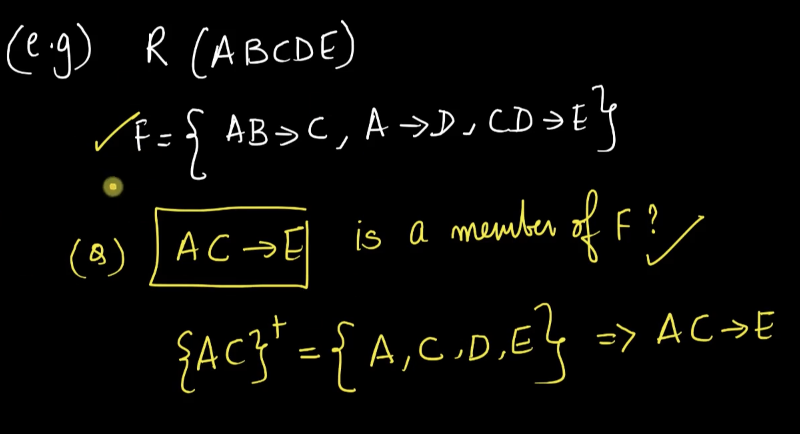 (e.g) R (ABCDE)
F = { AB → C, A → D, CD → E }
(Q) AC → E is a member of F?
{AC}⁺ = { A, C, D, E } => AC → E